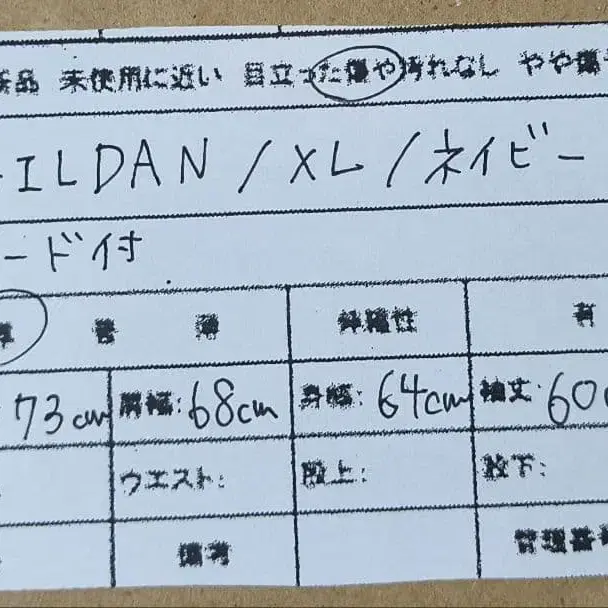 新品 未使用に近い 目立った傷や汚れなし やや傷
ILDAN/XL/ネイビー
ード付
厚 普 薄 伸縮性 有
73cm 肩幅:68cm 身幅:64cm 袖丈:60
ウエスト: 股上: 股下:
備考 管理番号